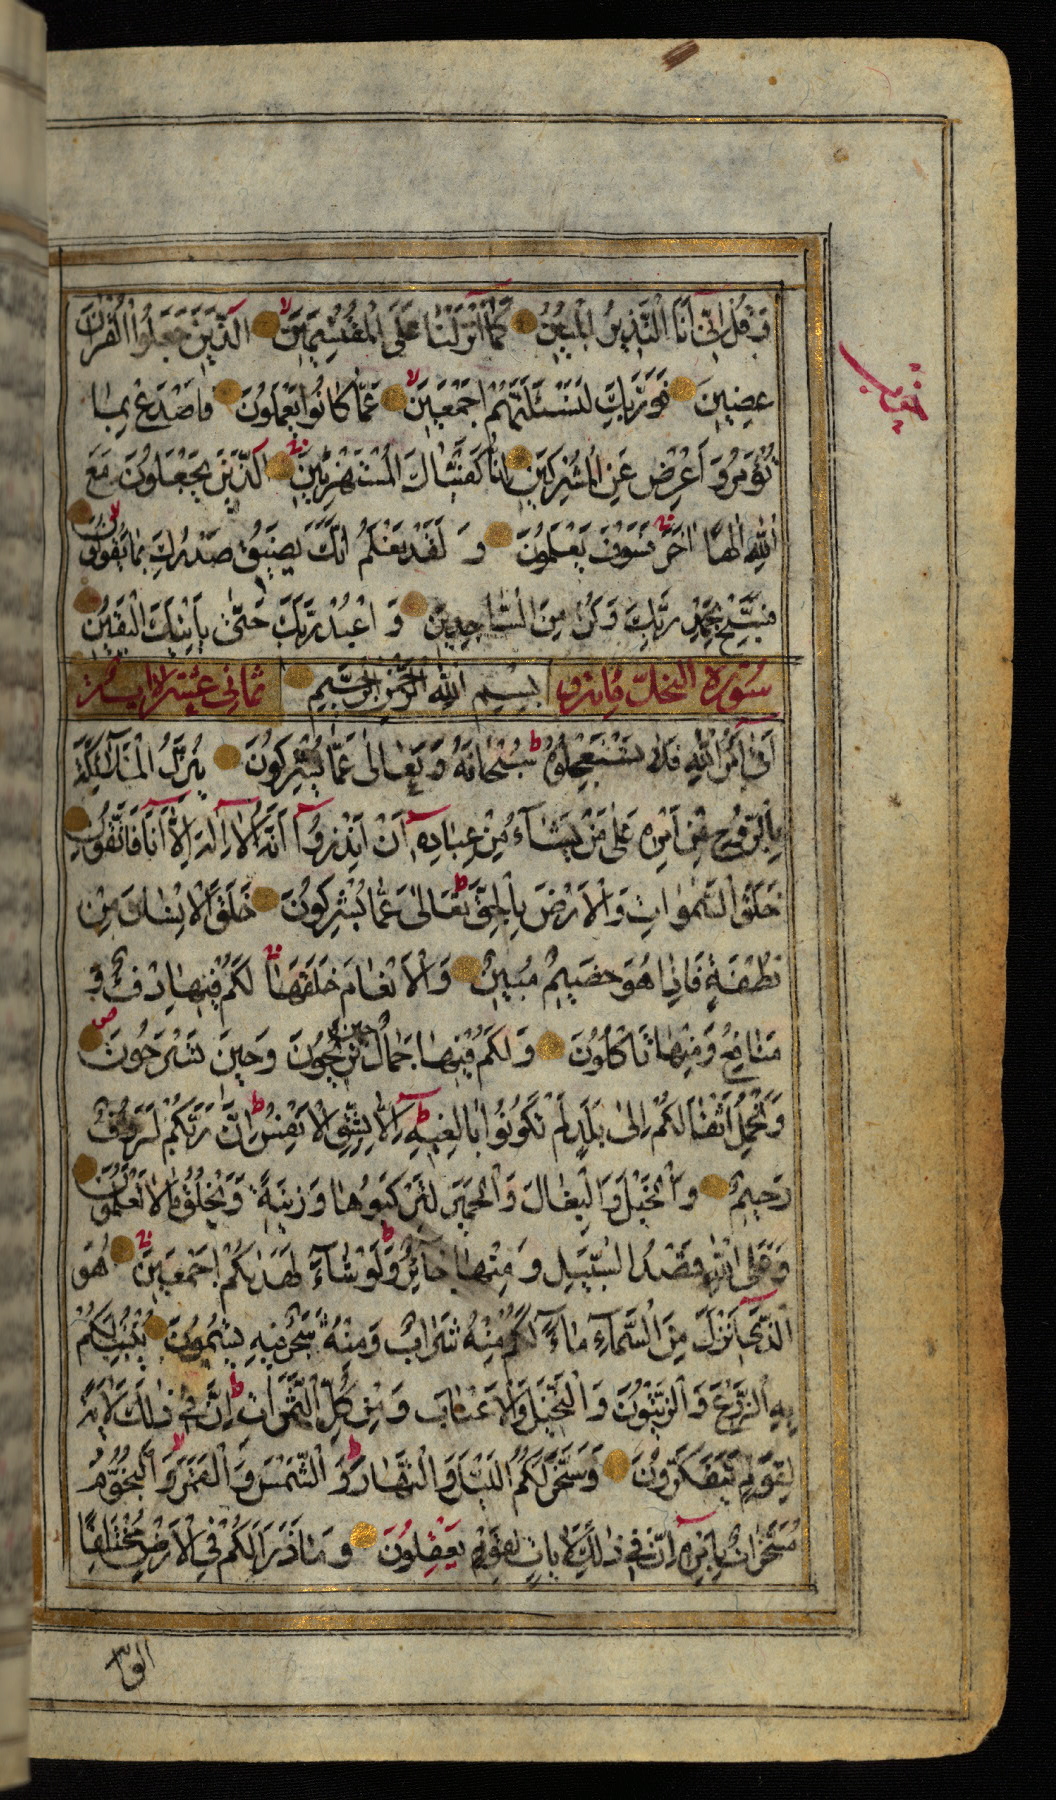 وَقُلْ اِنّٓى اَنَا النَّذٖيرُ الْمُبٖينُ كَمٰٓا اَنْزَلْنٰا عَلَى الْمُقْتَسِمٖينَ اَلَّذٖينَ جَعَلُوا الْقُرْاٰنَ
عِضٖينَ فَوَرَبِّكَ لَنَسْـَٔلَنَّهُمْ اَجْمَعٖينَ عَمّٰا كٰانُوا يَعْمَلُونَ فَاصْدَعْ بِمٰا
تُؤْمَرُ وَ اَعْرِضْ عَنِ الْمُشْرِكٖينَ اِنّٰا كَفَيْنٰاكَ الْمُسْتَهْزِئٖينَ اَلَّذٖينَ يَجْعَلُونَ مَعَ
اللّٰهِ اِلٰهًا اٰخَرَ فَسَوْفَ يَعْلَمُونَ وَ لَقَدْ نَعْلَمُ اَنَّكَ يَضٖيقُ صَدْرُكَ بِمٰا يَقُولُونَ
فَسَبِّحْ بِحَمْدِ رَبِّكَ وَكُنْ مِنَ السّٰاجِدٖينَ وَ اعْبُدْ رَبَّكَ حَتّٰى يَاْتِيَكَ الْيَقٖينُ
سُورة النحل مائة و بِسْمِ اللّٰهِ الرَّحْمٰنِ الرَّحٖيمِ ثمانى عشر اية
اَتٰٓى اَمْرُ اللّٰهِ فَلٰا تَسْتَعْجِلُوهُ سُبْحٰانَهُ وَ تَعٰالٰى عَمّٰا يُشْرِكُونَ يُنَزِّلُ الْمَلٰٓائِكَةَ
بِالرُّوحِ مِنْ اَمْرِهٖ عَلٰى مَنْ يَشٰٓاءُ مِنْ عِبٰادِهٖٓ اَنْ اَنْذِرُوٓا اَنَّهُ لٰٓا اِلٰهَ اِلّٰٓا اَنَا فَاتَّقُونِ
خَلَقَ السَّمٰوٰاتِ وَالْاَرْضَ بِالْحَقِّ تَعٰالٰى عَمّٰا يُشْرِكُونَ خَلَقَ الْاِنْسٰانَ مِنْ
نُطْفَةٍ فَاِذٰا هُوَ خَصٖيمٌ مُبٖينٌ وَالْاَنْعٰامَ خَلَقَهٰا لَكُمْ فٖيهٰا دِفْءٌ وَ
مَنٰافِعُ وَمِنْهٰا تَاْكُلُونَ وَلَكُمْ فٖيهٰا جَمٰالٌ حٖينَ تُرٖيحُونَ وَحٖينَ تَسْرَحُونَ
وَتَحْمِلُ اَثْقٰالَكُمْ اِلٰى بَلَدٍ لَمْ تَكُونُوا بٰالِغٖيهِ اِلّٰا بِشِقِّ الْاَنْفُسِ اِنَّ رَبَّكُمْ لَرَؤُفٌ
رَحٖيمٌ وَالْخَيْلَ وَالْبِغٰالَ وَالْحَمٖيرَ لِتَرْكَبُوهٰا وَ زٖينَةً وَيَخْلُقُ مٰا لٰا تَعْلَمُونَ
وَعَلَى اللّٰهِ قَصْدُ السَّبٖيلِ وَ مِنْهٰا جٰٓائِرٌ وَلَوْ شٰٓاءَ لَهَدٰيكُمْ اَجْمَعٖينَ هُوَ
الَّذٖٓى اَنْزَلَ مِنَ السَّمٰٓاءِ مٰٓاءً لَكُمْ مِنْهُ شَرٰابٌ وَمِنْهُ شَجَرٌ فٖيهِ تُسٖيمُونَ يُنْبِتُ لَكُمْ
بِهِ الزَّرْعَ وَ الزَّيْتُونَ وَ النَّخٖيلَ وَالْاَعْنٰابَ وَ مِنْ كُلِّ الثَّمَرٰاتِ اِنَّ فٖى ذٰلِكَ لَاٰيَةً
لِقَوْمٍ يَتَفَكَّرُونَ وَسَخَّرَ لَكُمُ الَّيْلَ وَالنَّهٰارَ وَ الشَّمْسَ وَالْقَمَرَ وَالنُّجُومُ
مُسَخَّرٰاتٌ بِاَمْرِهٖٓ اِنَّ فٖى ذٰلِكَ لَاٰيٰاتٍ لِقَوْمٍ يَعْقِلُونَ وَ مٰا ذَرَاَ لَكُمْ فِى الْاَرْضِ مُخْتَلِفًا